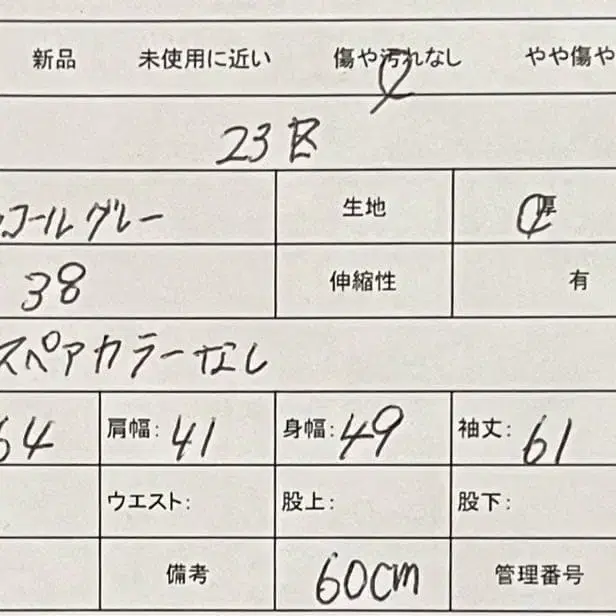 新品 未使用に近い 傷や汚れなし やや傷や
23区
コールグレー 生地 厚
38 伸縮性 有
スペアカラーなし
64 肩幅: 41 身幅: 49 袖丈: 61
ウエスト: 股上: 股下:
備考 60cm 管理番号